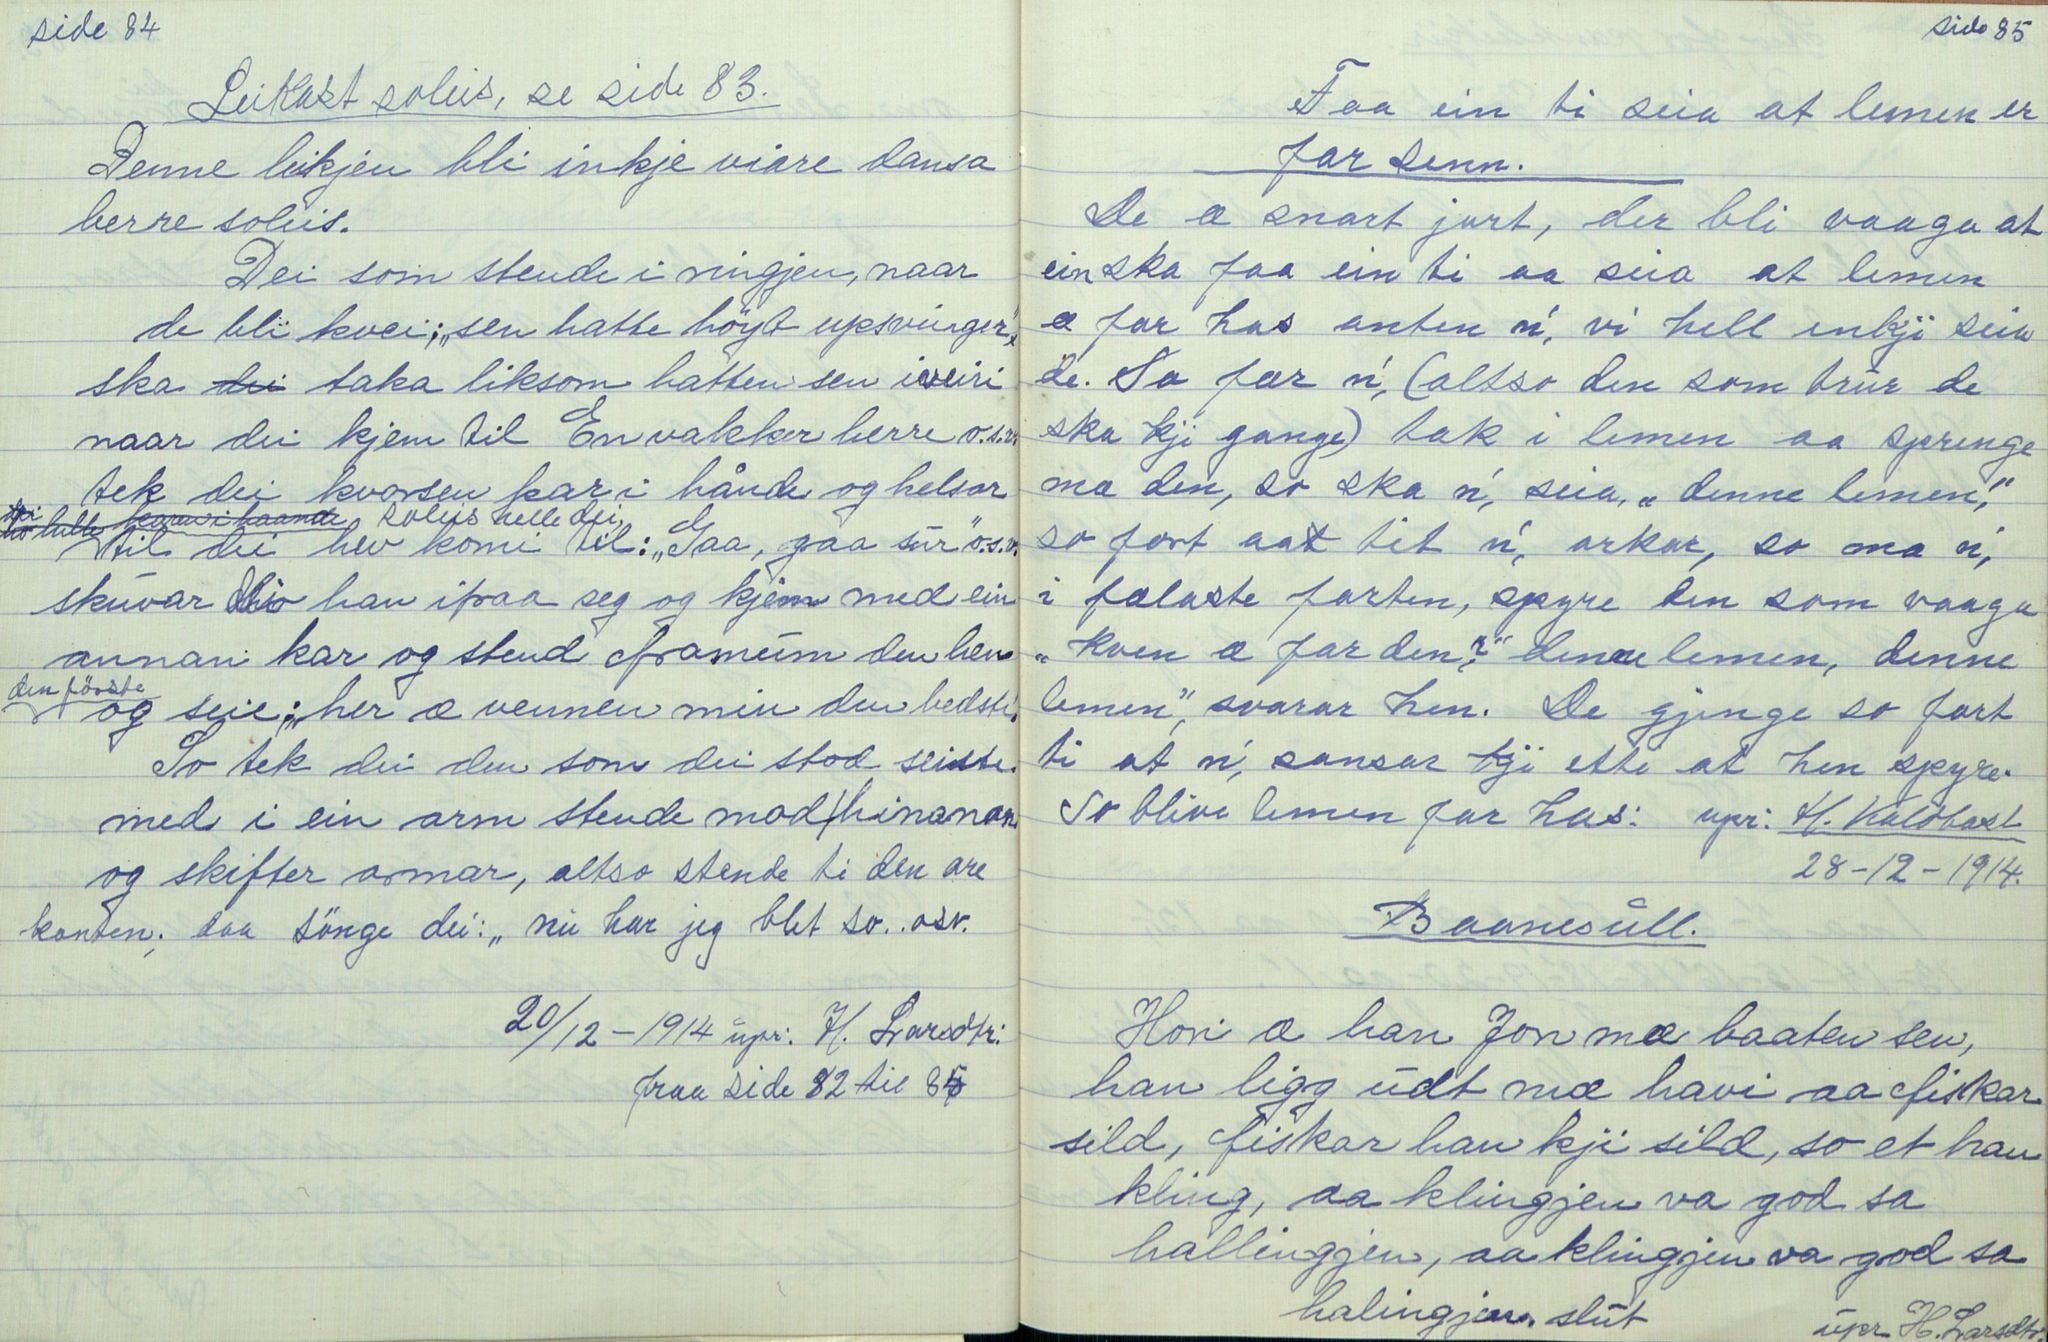 side 84
Leikast soleis, se side 83.
Denne leikjen bli inkje viare dansa
berre soleis.
Dei som stende i ringjen, naar
de bli kvei; „sen hatte höyt upsvinger,"
ska dei taka liksom hatten sen i veiri
naar dei kjem til En vakker herre o.s.v.
tek dei kvorsen kar i hånde og helsar
soleis helle dei,
til dei hev komi til: „Gaa, gaa sur" ö.s.v.
skuvar han ifraa seg og kjem med ein
annan kar og stend framum den hen
den förste
og seie; „her æ vennen min den bedste".
So tek dei den som dei stod seiste
med i ein arm stende mod hinanan
og skifter armar, altso stende ti den are
kanten; daa sönge dei: „nu har jeg blet so.. osv.
20/12 – 1914 upr: H. Larsdtr:
fraa side 82 til 85
side 85
Faa ein ti seia at lemen er
far senn.
De æ snart jort, der bli vaaga at
ein ska faa ein ti aa seia at lemen
æ far has anten n', vi hell inkji seia
de. So fær n', (altso den som trur de
ska kji gange) tak i lemen aa springe
mæ den, so ska n', seia, „denne lemen,"
so fort aat tit n', arkar, so ma n',
i falaste farten, spyre den som vaaga
„kven æ far den?" denne lemen, denne
lemen", svarar hen. De gjenge so fort
ti at n', sansar kji ette at hen spyre.
So blive lemen far has: upr: H. Kaldbast
28–12–1914.
Baanesull.
Hori æ han Jon mæ baaten sen,
han ligg udt mæ havi aa fiskar
sild, fiskar han kji sild, so et han
kling, aa klingjen va god sa
hallingjen, aa klingjen va god sa
halingjen. slut
upr H. Larsdtr: